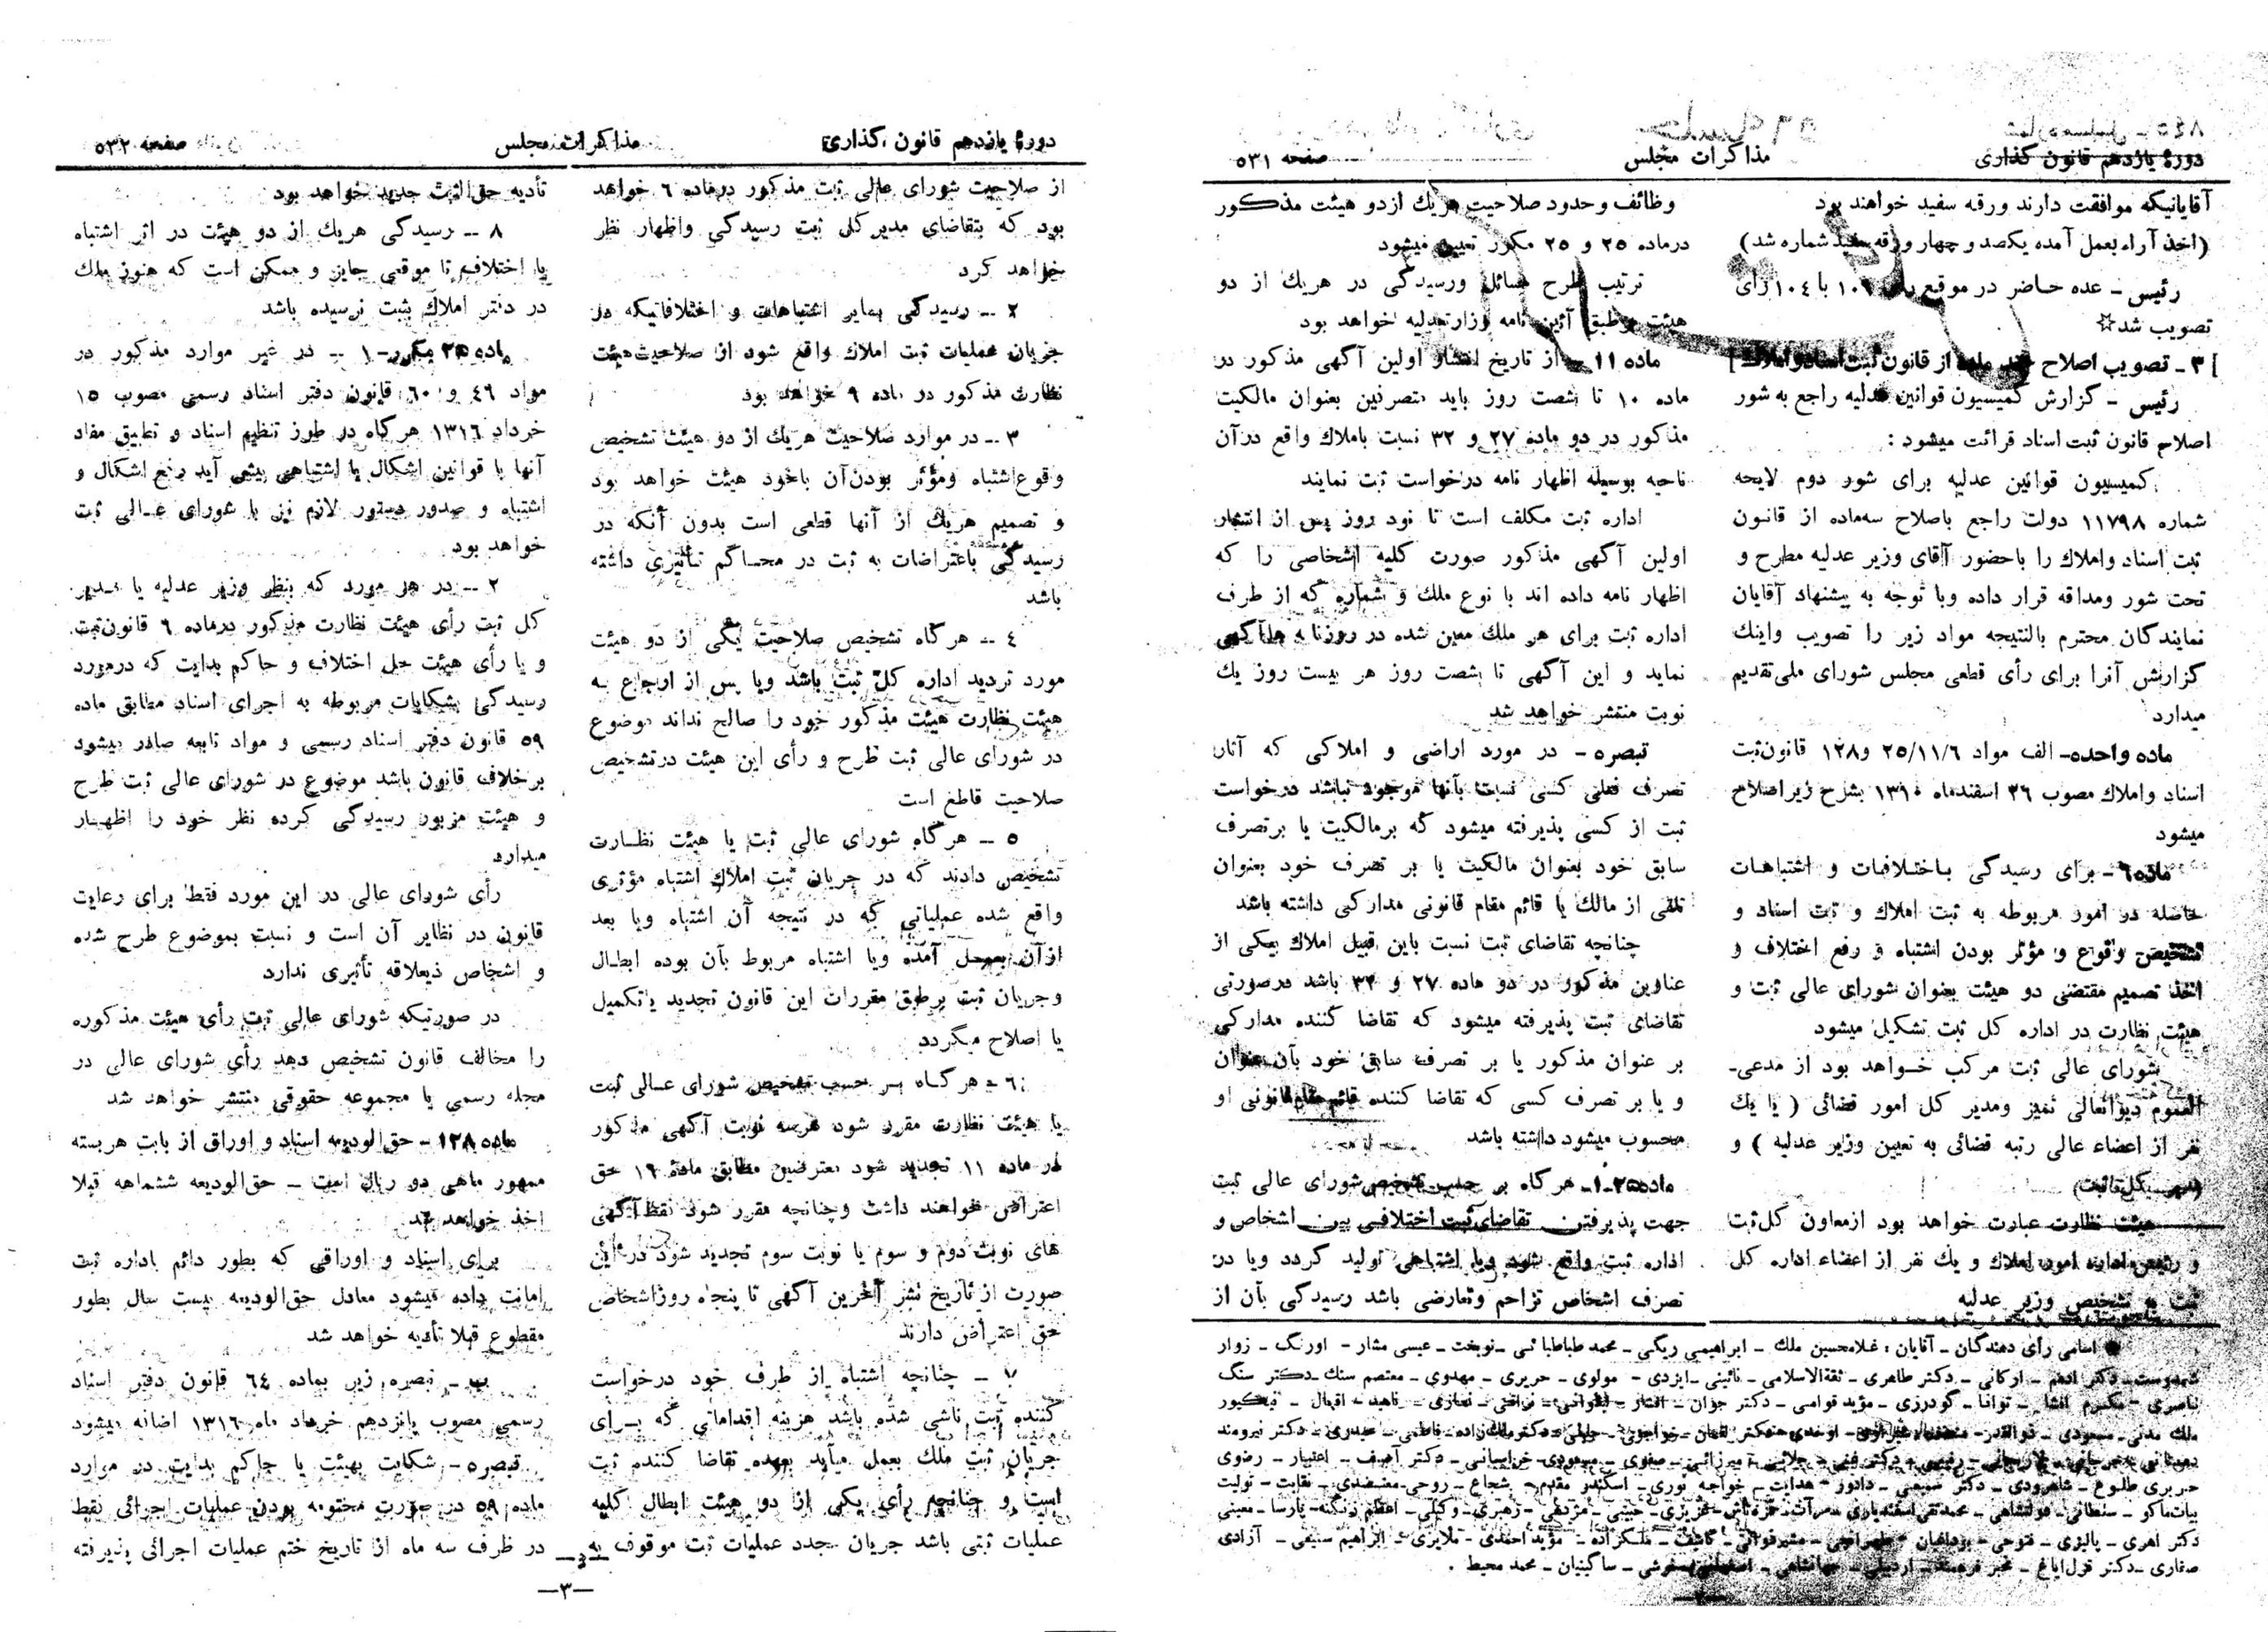 دورهٔ یازدهم قانون گذاری
مذاکرات مجلس
صفحه ۵۳۱
آقایانیکه موافقت دارند ورقه سفید خواهند بود
(اخذ آراء بعمل آمده یکصد و چهار ورقه سفید شماره شد)
رئیس ـ عده حاضر در موقع با ۱۰٤ رأی
تصویب شد☆
[ ۳ ـ تصویب اصلاح چند ماده از قانون ثبت اسناد و املاک ]
رئیس ـ گزارش کمیسیون قوانین عدلیه راجع به شور
اصلاح قانون ثبت اسناد قرائت میشود :
کمیسیون قوانین عدلیه برای شور دوم لایحه
شماره ۱۱۷۹۸ دولت راجع باصلاح سه‌ماده از قانون
ثبت اسناد واملاك را باحضور آقای وزیر عدلیه مطرح و
تحت شور ومداقه قرار داده وبا توجه به پیشنهاد آقایان
نمایندگان محترم بالنتیجه مواد زیر را تصویب واینك
گزارش آنرا برای رأی قطعی مجلس شورای ملی تقدیم
میدارد
ماده واحده ـ الف مواد ۲۵/۱۱/۶ و۱۲۸ قانون ثبت
اسناد واملاك مصوب ۲۶ اسفندماه ۱۳۱۰ بشرح زیر اصلاح
میشود
ماده ٦ ـ برای رسیدگی باختلافات و اشتباهات
حاصله در امور مربوطه به ثبت املاك و ثبت اسناد و
تشخیص وقوع و مؤثر بودن اشتباه و رفع اختلاف و
اتخاذ تصمیم مقتضی دو هیئت بعنوان شورای عالی ثبت و
هیئت نظارت در اداره کل ثبت تشکیل میشود
شورای عالی ثبت مرکب خواهد بود از مدعی‌ـ
العموم دیوانعالی تمیز ومدیر کل امور قضائی ( یا یك
نفر از اعضاء عالی رتبه قضائی به تعیین وزیر عدلیه ) و
(مدیر کل ثبت)
هیئت نظارت عبارت خواهد بود ازمعاون کل ثبت
و رئیس اداره امور املاك و یك نفر از اعضاء اداره کل
ثبت به تشخیص وزیر عدلیه
وظائف وحدود صلاحیت هریك ازدو هیئت مذکور
درماده ۲۵ و ۲۵ مکرر تعیین میشود
ترتیب طرح مسائل ورسیدگی در هریك از دو
هیئت برطبق آئین نامه وزارتعدلیه خواهد بود
ماده ۱۱ ـ از تاریخ انتشار اولین آگهی مذکور در
ماده ۱۰ تا شصت روز باید متصرفین بعنوان مالکیت
مذکور در دو ماده ۲۷ و ۳۲ نسبت باملاك واقع درآن
ناحیه بوسیله اظهار نامه درخواست ثبت نمایند
اداره ثبت مکلف است تا نود روز پس از انتشار
اولین آگهی مذکور صورت کلیه اشخاصی را که
اظهار نامه داده اند با نوع ملك و شماره که از طرف
اداره ثبت برای هر ملك معین شده در روزنامه ها آگهی
نماید و این آگهی تا شصت روز هر بیست روز یك
نوبت منتشر خواهد شد
تبصره ـ در مورد اراضی و املاکی که آثار
تصرف فعلی کسی نسبت بآنها موجود نباشد درخواست
ثبت از کسی پذیرفته میشود که برمالکیت یا برتصرف
سابق خود بعنوان مالکیت یا بر تصرف خود بعنوان
تلقی از مالك یا قائم مقام قانونی مدارکی داشته باشد
چنانچه تقاضای ثبت نسبت باین قبیل املاك بیکی از
عناوین مذکور در دو ماده ۲۷ و ۳۲ باشد درصورتی
تقاضای ثبت پذیرفته میشود که تقاضا کننده مدارکی
بر عنوان مذکور یا بر تصرف سابق خود بآن عنوان
و یا بر تصرف کسی که تقاضا کننده قائم مقام قانونی او
محسوب میشود داشته باشد
ماده ۲۵ ـ ۱ـ هرگاه بر حسب تشخیص شورای عالی ثبت
جهت پذیرفتن تقاضای ثبت اختلافی بین اشخاص و
اداره ثبت واقع شود ویا اشتباهی تولید گردد ویا در
تصرف اشخاص تزاحم وتعارضی باشد رسیدگی بآن از
اسامی رأی دهندگان ـ آقایان : غلامحسین ملك ـ ابراهیمی ریگی ـ محمد طباطبائی ـ نوبخت ـ عیسی مشار ـ اورنگ ـ زوار
دکتر ادهم ـ ارکانی ـ دکتر طاهری ـ ثقةالاسلامی ـ نائینی ـ ایزدی ـ مولوی ـ حریری ـ مهدوی ـ معتصم سنك ـ دکتر سنگ
ناصری ـ مکرم افشار ـ توانا ـ گودرزی ـ مؤید قوامی ـ دکتر جوان ـ افشار ـ نراقی ـ نمازی ـ ناهید ـ اقبال ـ نیکپور
ملك مدنی ـ مسعودی ـ خواجوی ـ دکتر ملك زاده ـ فاطمی ـ حیدری ـ دکتر نیرومند
صفوی ـ مسعودی خراسانی ـ دکتر آهی ـ اعتبار ـ رضوی
حریری طلوع ـ شاهرودی ـ دادور ـ هدایت ـ خواجه نوری ـ اسکندر مقدم ـ شجاع ـ روحی ـ معتضدی ـ نقابت ـ تولیت
بیات ماکو ـ سلطانی ـ وکیلی ـ اعظم زنگنه ـ پارسا ـ معینی
دکتر اهری ـ پالیزی ـ فتوحی ـ کاشف ـ ملکزاده ـ مؤید احمدی ـ ملایری ـ ابراهیم سمیعی ـ آزادی
صفاری ـ دکتر قزل‌ایاغ ـ مخبر فرهمند ـ اردبیلی ـ ساگینیان ـ محمد محیط .
دورهٔ یازدهم قانون گذاری
مذاکرات مجلس
صفحه ۵۳۲
از صلاحیت شورای عالی ثبت مذکور درماده ٦ خواهد
بود که بتقاضای مدیرکل ثبت رسیدگی واظهار نظر
خواهد کرد
۲ ـ رسیدگی بسایر اشتباهات و اختلافاتیکه در
جریان عملیات ثبت املاك واقع شود از صلاحیت هیئت
نظارت مذکور در ماده ٦ خواهد بود
۳ ـ در موارد صلاحیت هریك از دو هیئت تشخیص
وقوع اشتباه ومؤثر بودن‌آن باخود هیئت خواهد بود
و تصمیم هریك از آنها قطعی است بدون آنکه در
رسیدگی باعتراضات به ثبت در محاکم تأثیری داشته
باشد
٤ ـ هرگاه تشخیص صلاحیت یکی از دو هیئت
مورد تردید اداره کل ثبت باشد ویا پس از ارجاع به
هیئت نظارت هیئت مذکور خود را صالح نداند موضوع
در شورای عالی ثبت طرح و رأی این هیئت درتشخیص
صلاحیت قاطع است
۵ ـ هرگاه شورای عالی ثبت یا هیئت نظارت
تشخیص دادند که در جریان ثبت املاك اشتباه مؤثری
واقع شده عملیاتی که در نتیجه آن اشتباه ویا بعد
ازآن بعمل آمده ویا اشتباه مربوط بآن بوده ابطال
وجریان ثبت برطبق مقررات این قانون تجدید یا تکمیل
یا اصلاح میگردد
٦ ـ هرگاه بر حسب تشخیص شورای عالی ثبت
یا هیئت نظارت مقرر شود هرسه نوبت آگهی مذکور
در ماده ۱۱ تجدید شود معترضین مطابق ماده ۱٦ حق
اعتراض خواهند داشت وچنانچه مقرر شود فقط آگهی
های نوبت دوم و سوم یا نوبت سوم تجدید شود در این
صورت از تاریخ نشر آخرین آگهی تا پنجاه روز اشخاص
حق اعتراض دارند
۷ ـ چنانچه اشتباه از طرف خود درخواست
کننده ثبت ناشی شده باشد هزینه اقداماتی که برای
جریان ثبت ملك بعمل میآید بعهده تقاضا کننده ثبت
است و چنانچه رأی یکی از دو هیئت ابطال کلیه
عملیات ثبتی باشد جریان مجدد عملیات ثبت موقوف به
تأدیه حق‌الثبت جدید خواهد بود
۸ ـ رسیدگی هریك از دو هیئت در اثر اشتباه
یا اختلاف تا موقعی جایز و ممکن است که هنوز ملك
در دفتر املاك ثبت نرسیده باشد
ماده ۲۵ مکرر ـ ۱ ـ در غیر موارد مذکور در
مواد ٤٦ و ٦۰ قانون دفتر اسناد رسمی مصوب ۱۵
خرداد ۱۳۱٦ هرگاه در طرز تنظیم اسناد و تطبیق مفاد
آنها با قوانین اشکال یا اشتباهی پیش آید رفع اشکال و
اشتباه و صدور دستور لازم نیز با شورای عالی ثبت
خواهد بود
۲ ـ در هر مورد که بنظر وزیر عدلیه یا مدیر
کل ثبت رأی هیئت نظارت مذکور درماده ٦ قانون ثبت
و یا رأی هیئت حل اختلاف و حاکم بدایت که درمورد
رسیدگی بشکایات مربوطه به اجرای اسناد مطابق ماده
۵۹ قانون دفتر اسناد رسمی و مواد تابعه صادر میشود
برخلاف قانون باشد موضوع در شورای عالی ثبت طرح
و هیئت مزبور رسیدگی کرده نظر خود را اظهار
میدارد
رأی شورای عالی در این مورد فقط برای رعایت
قانون در نظایر آن است و نسبت بموضوع طرح شده
و اشخاص ذیعلاقه تأثیری ندارد
در صورتیکه شورای عالی ثبت رأی هیئت مذکوره
را مخالف قانون تشخیص دهد رأی شورای عالی در
مجله رسمی یا مجموعه حقوقی منتشر خواهد شد
ماده ۱۲۸ ـ حق‌الودیعه اسناد و اوراق از بابت هر بسته
ممهور ماهی دو ریال است ـ حق‌الودیعه ششماهه قبلا
اخذ خواهد شد
برای اسناد و اوراقی که بطور دائم باداره ثبت
امانت داده میشود معادل حق‌الودیعه بیست سال بطور
مقطوع قبلا تأدیه خواهد شد
ب ـ تبصره زیر بماده ٦٤ قانون دفتر اسناد
رسمی مصوب پانزدهم خرداد ماه ۱۳۱٦ اضافه میشود
تبصره ـ شکایت بهیئت یا حاکم بدایت در موارد
ماده ۵۹ در صورت مختومه بودن عملیات اجرائی فقط
در ظرف سه ماه از تاریخ ختم عملیات اجرائی پذیرفته
ـ۳ـ